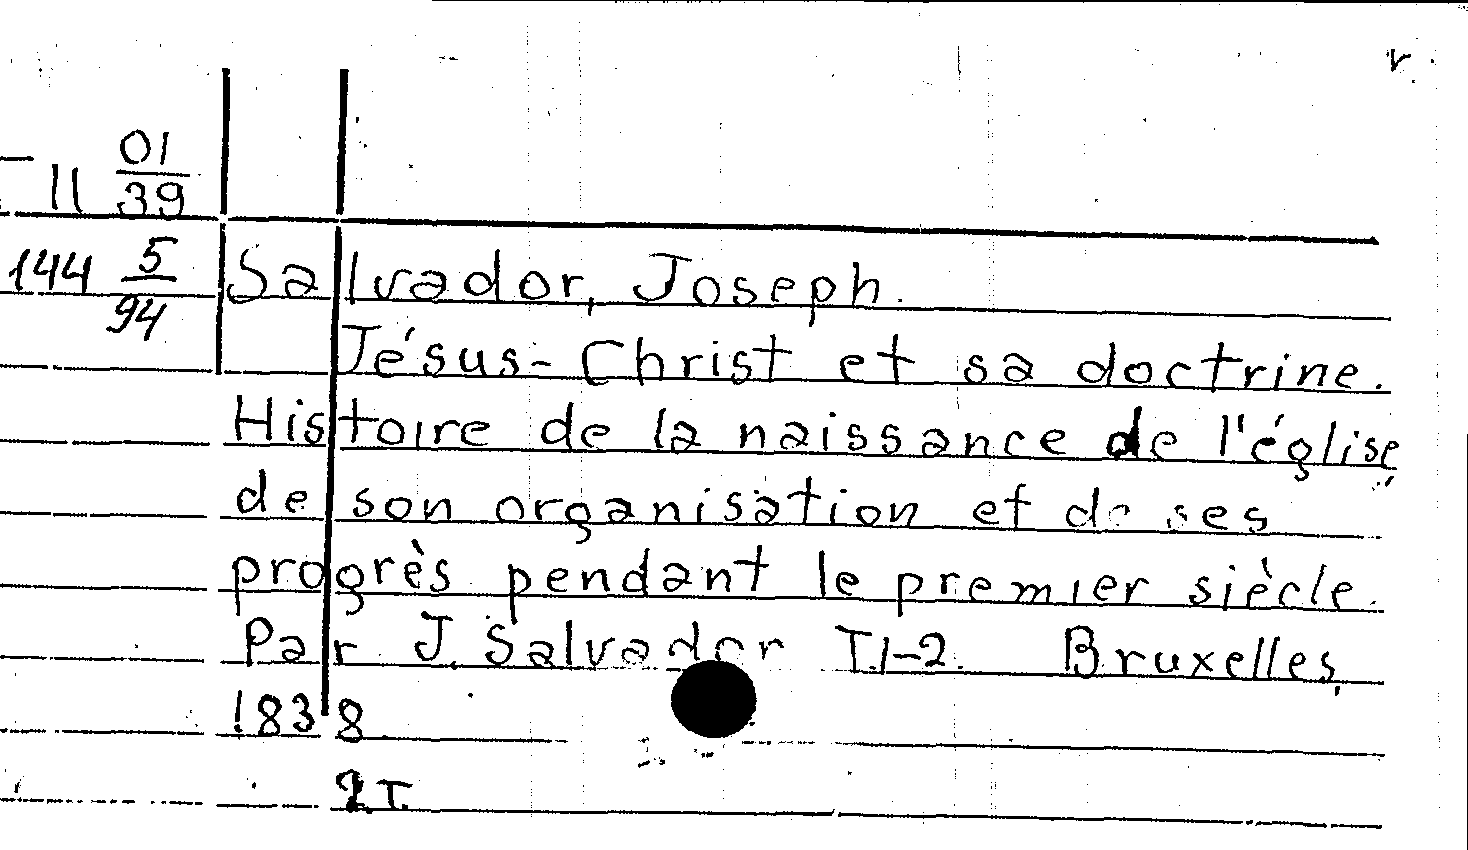 v.
11 01/39
144 5/94
Salvador, Joseph.
Jésus-Christ et sa doctrine.
Histoire de la naissance de l'église,
de son organisation et de ses
progrès pendant le premier siècle.
Par J. Salvador T.1-2. Bruxelles,
1838
2 T.